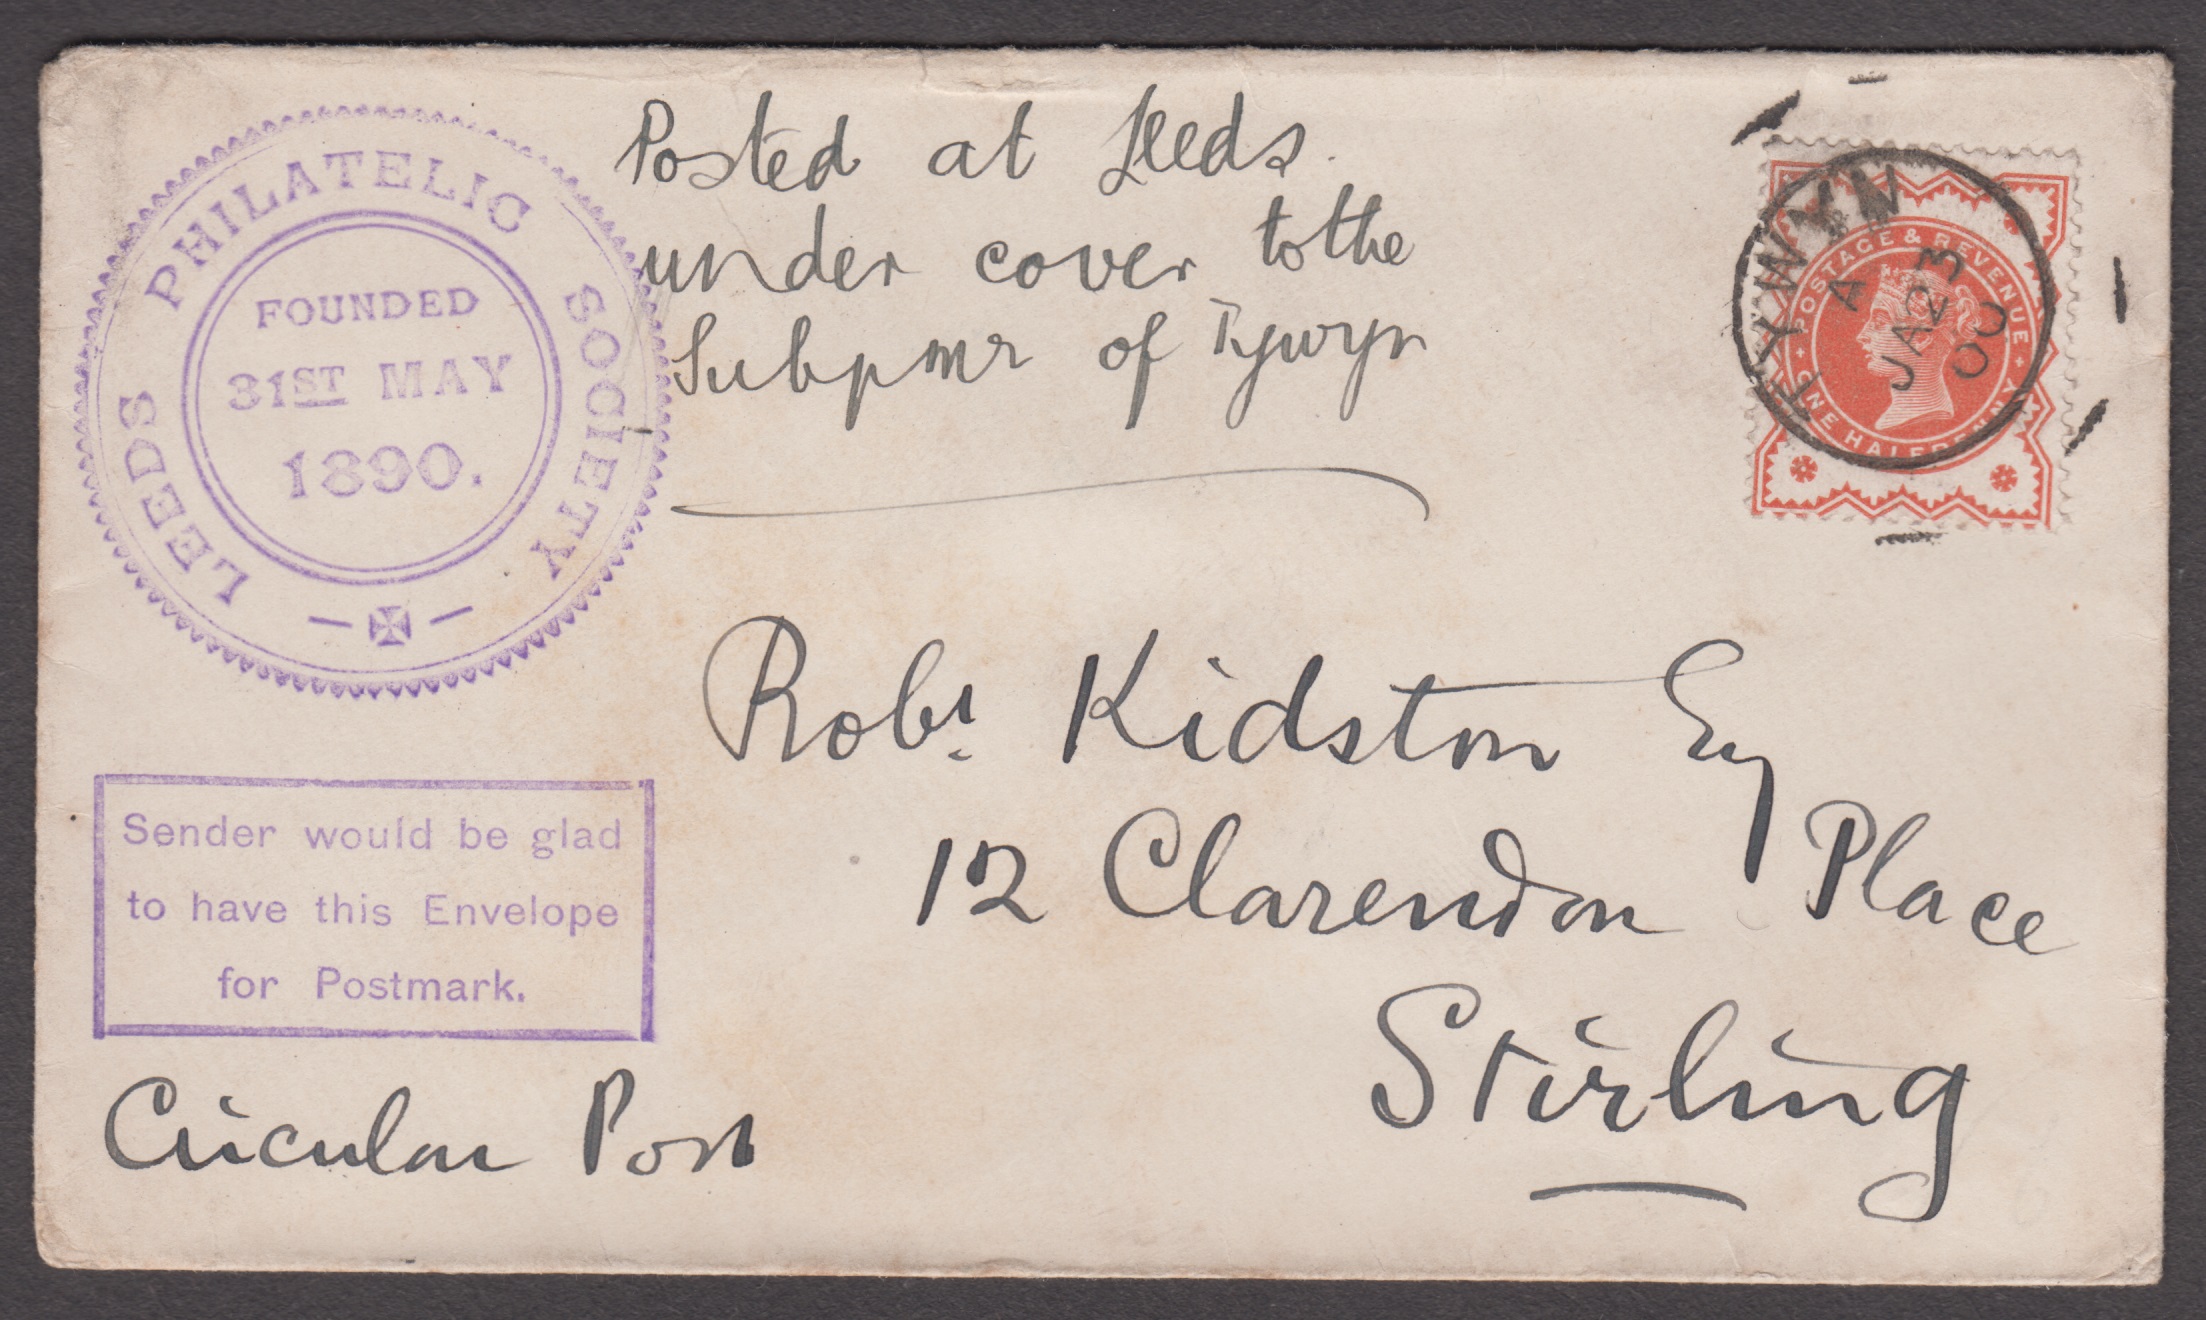 LEEDS PHILATELIC SOCIETY
FOUNDED
31ST MAY
1890.
Posted at Leeds.
under cover to the
Subpmr of Tywyn
TYWYN
A
JA 23
00
POSTAGE & REVENUE
ONE HALFPENNY
Robt. Kidston Esq
12 Clarendon Place
Stirling
Sender would be glad
to have this Envelope
for Postmark.
Circular Post